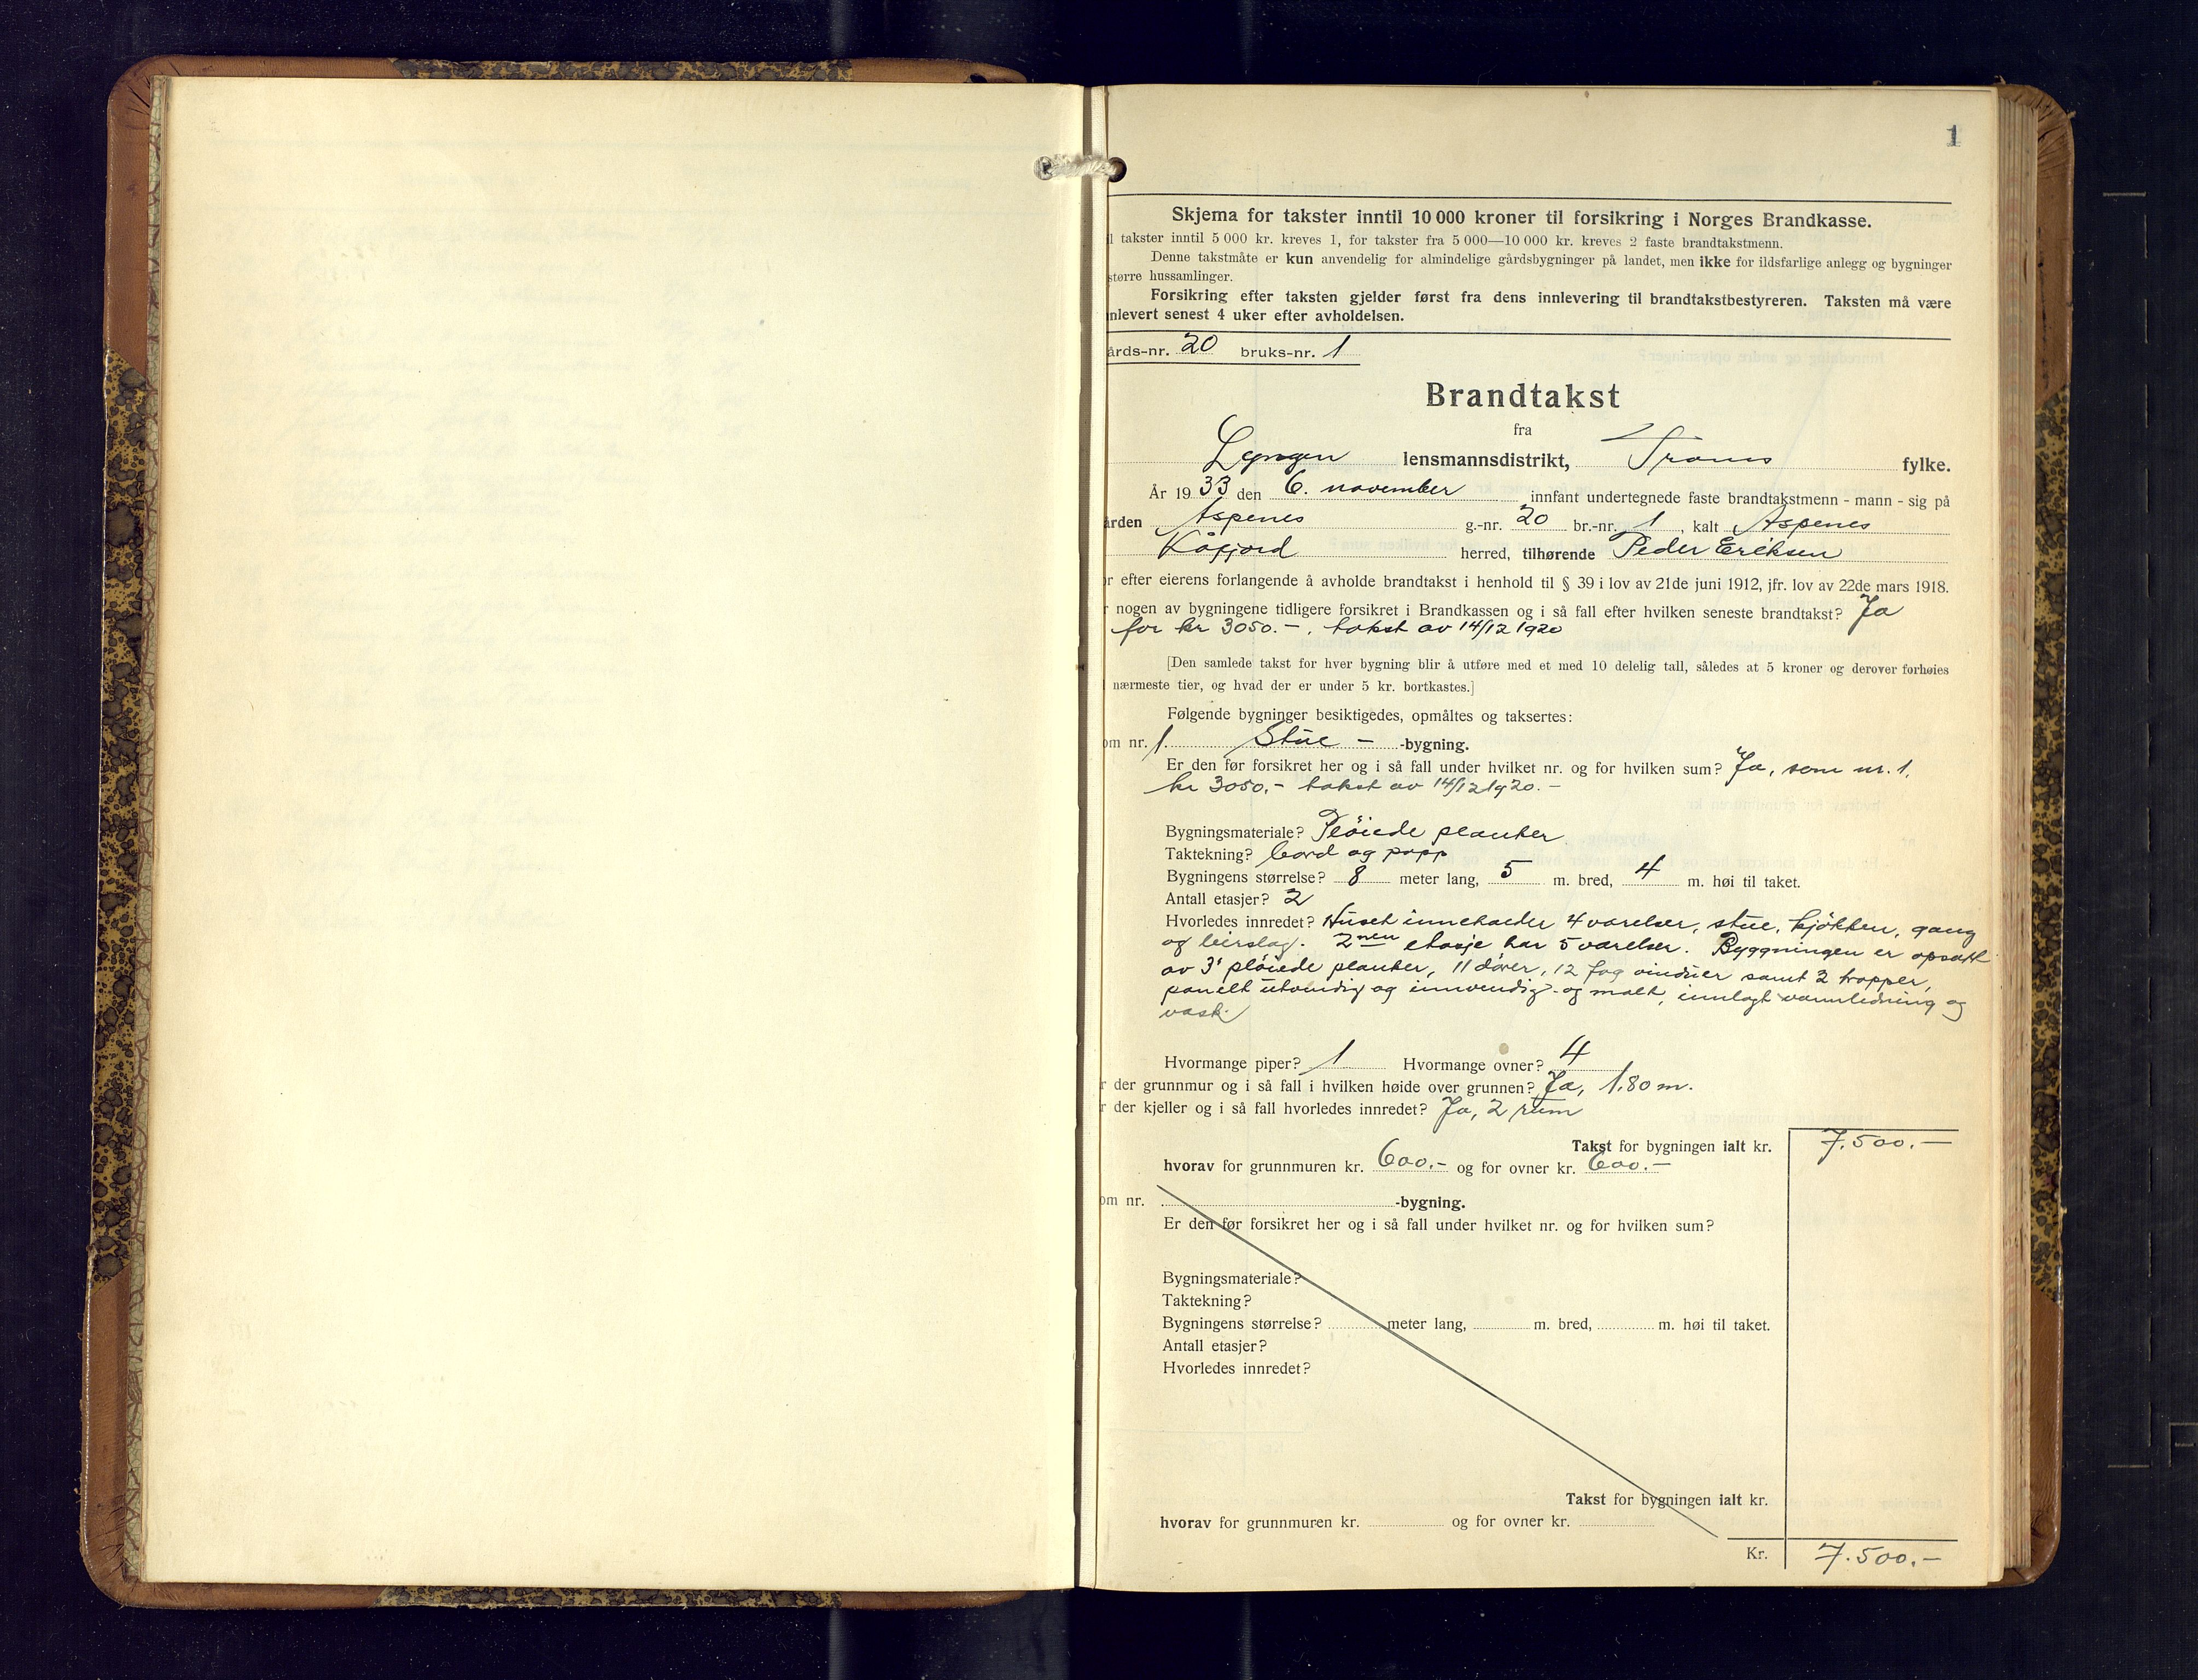 1
Skjema for takster inntil 10 000 kroner til forsikring i Norges Brandkasse.
l takster inntil 5 000 kr. kreves 1, for takster fra 5 000—10 000 kr. kreves 2 faste brandtakstmenn.
Denne takstmåte er kun anvendelig for almindelige gårdsbygninger på landet, men ikke for ildsfarlige anlegg og bygninger
større hussamlinger.
Forsikring efter taksten gjelder først fra dens innlevering til brandtakstbestyreren. Taksten må være
nlevert senest 4 uker efter avholdelsen.
årds-nr. 20 bruks-nr. 1
Brandtakst
fra
Lyngen lensmannsdistrikt, Troms fylke.
År 1933 den 6. november innfant undertegnede faste brandtakstmenn - mann - sig på
ården Aspenes g.-nr. 20 br.-nr. 1, kalt Aspenes
Kåfjord herred, tilhørende Peder Eriksen
or efter eierens forlangende å avholde brandtakst i henhold til § 39 i lov av 21de juni 1912, jfr. lov av 22de mars 1918.
r nogen av bygningene tidligere forsikret i Brandkassen og i så fall efter hvilken seneste brandtakst? Ja
for kr 3050.-, takst av 14/12 1920
[Den samlede takst for hver bygning blir å utføre med et med 10 delelig tall, således at 5 kroner og derover forhøies
nærmeste tier, og hvad der er under 5 kr. bortkastes.]
Følgende bygninger besiktigedes, opmåltes og taksertes:
om nr. 1. Stue - -bygning.
Er den før forsikret her og i så fall under hvilket nr. og for hvilken sum? Ja, som nr. 1,
kr 3050.- takst av 14/12 1920.-
Bygningsmateriale? Pløiede planker
Taktekning? bord og papp
Bygningens størrelse? 8 meter lang, 5 m. bred, 4 m. høi til taket.
Antall etasjer? 2
Hvorledes innredet? Huset inneholder 4 værelser, stue, kjøkken, gang
og leirslag. 2nen etasje har 5 værelser. Byggningen er opsatt
av 3" pløiede planker, 11 dører, 12 fag vinduer samt 2 trapper,
panelt utvendig og innvendig og malt, innlagt vannledning og
vask.
Hvormange piper? 1 Hvormange ovner? 4
r der grunnmur og i så fall i hvilken høide over grunnen? Ja, 1.80 m.
r der kjeller og i så fall hvorledes innredet? Ja, 2 rum
Takst for bygningen ialt kr. 7.500.-
hvorav for grunnmuren kr. 600.- og for ovner kr. 600.-
om nr. -bygning.
Er den før forsikret her og i så fall under hvilket nr. og for hvilken sum?
Bygningsmateriale?
Taktekning?
Bygningens størrelse? meter lang, m. bred, m. høi til taket.
Antall etasjer?
Hvorledes innredet?
Takst for bygningen ialt kr.
hvorav for grunnmuren kr. og for ovner kr.
Kr. 7.500.-